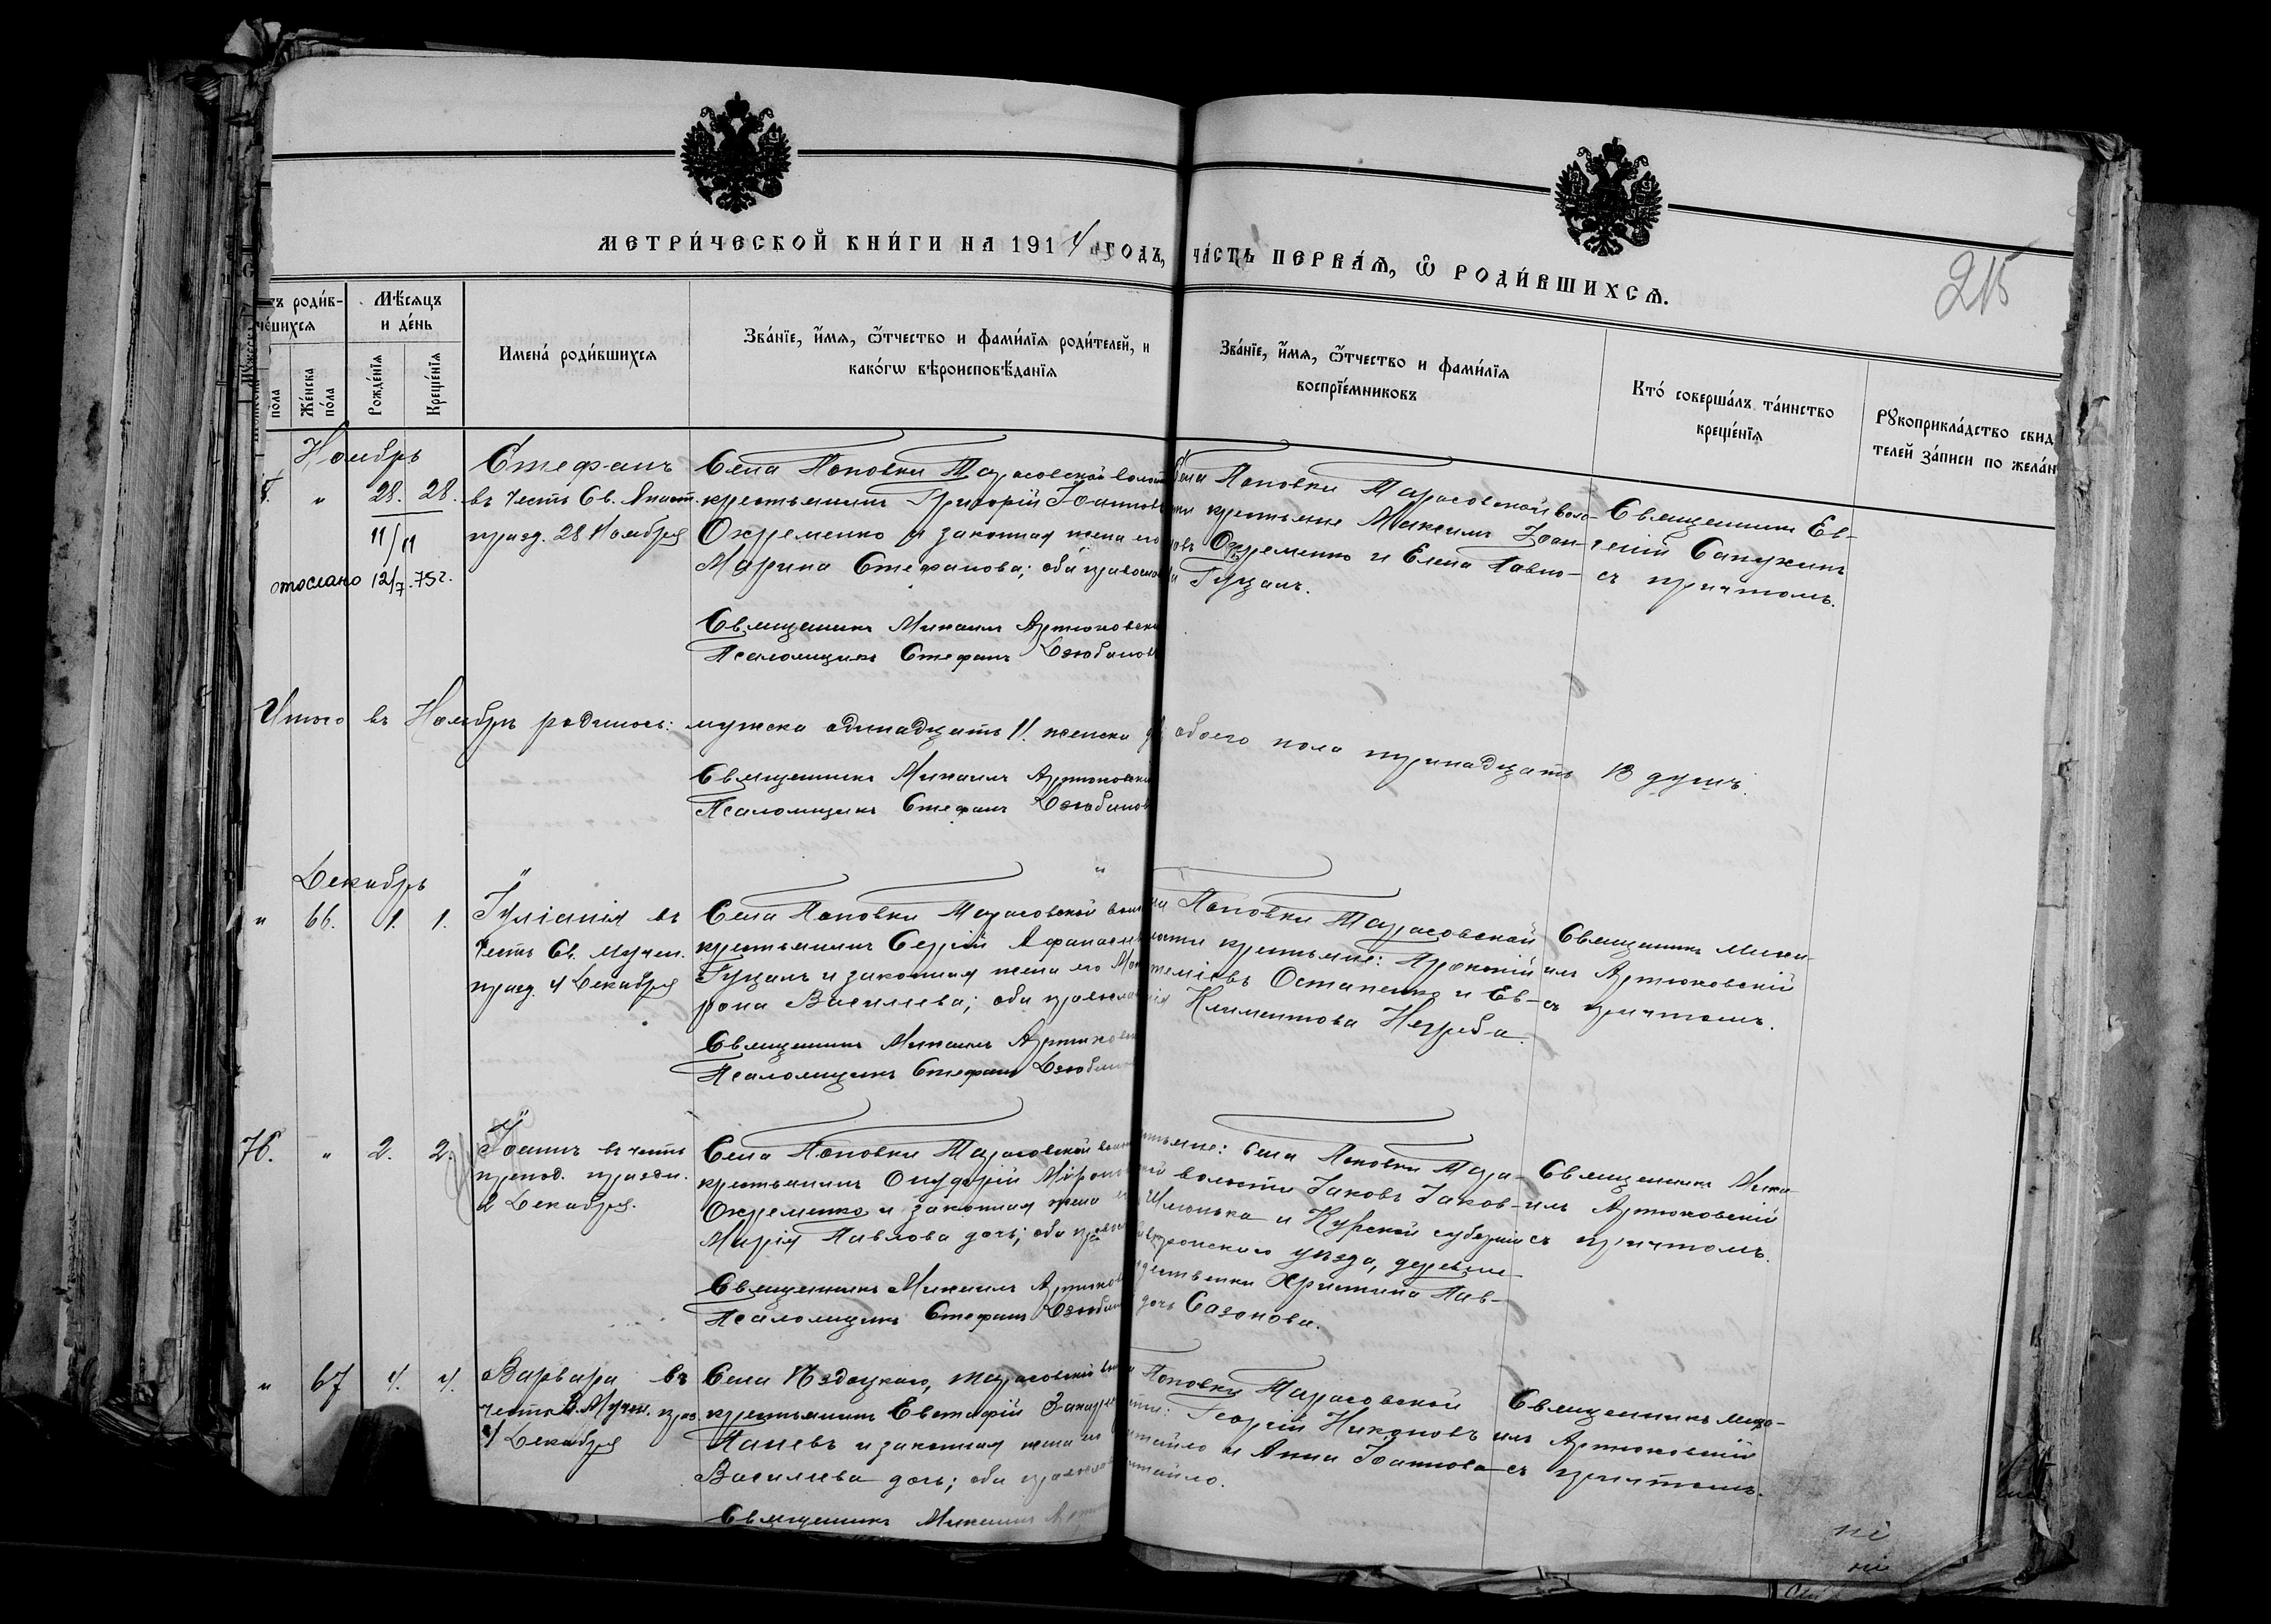 МЕТРИ́ЧЕСКОЙ КНИ́ГИ НА 1914 ГОДЪ, ЧА́СТЬ ПЕРВА́Ѧ, Ѽ РОДИ́ВШИХСѦ.
215
роди́в-
ше́ишхсѧ
Мѣ́сѧцъ
и де́нь
пола
Же́нска
по́ла
Рожде́нїѧ
Креще́нїѧ
Имена́ роди́вшихсѧ
Зва́нїе, и҆́мѧ, ѻ҆́тчество и фами́лїѧ роди́телей, и
како́гѡ вѣроисповѣ́данїѧ
Зва́нїе, и҆́мѧ, ѻ҆́тчество и фами́лїѧ
воспрїе́мниковъ
Кто́ соверша́лъ та́инство
креще́нїѧ
Рꙋкоприкла́дство свид
телей за́писи по жела́н
Ноябрь
" 28. 28.
11/11
отослано 12/7.75г.
Стефанъ
въ честь Св.
празд. 28 Ноября
Села Поповки Тарасовской волост
крестьянинъ Григорій Іоанновъ
Охременко и законная жена его
Марина Стефанова; оба православ
Священникъ Михаилъ Артюховскі
Псаломщикъ Стефанъ Дзюбановъ
Села Поповки Тарасовской воло-
сти крестьяне Максимъ Іоан-
новъ Охременко и Елена Павло-
ва Гуцалъ.
Священникъ Ев-
геній Сапухинъ
съ причтомъ.
Итого въ Ноябрѣ родилось: мужска одинадцать 11. женска обоего пола тринадцать 13 душъ.
Священникъ Михаилъ Артюховскі
Псаломщикъ Стефанъ Дзюбановъ
Декабрь
" 66. 1. 1.
Іуліанія въ
честь Св. мучен.
празд. 4 Декабря
Села Поповки Тарасовской воло
крестьянинъ Сергій Афанасіев
Гуцалъ и законная жена его Мат
рона Василіева; оба православ
Священникъ Михаилъ Артюховс
Псаломщикъ Стефанъ Дзюбано
Поповки Тарасовской
лости крестьяне: Прокопій
теліевъ Остапенко и Ев-
Климентова Негреба.
Священникъ Миха-
илъ Артюховскій
съ причтомъ.
76. " 2. 2.
Іоаннъ въ честь
препод. праздн.
2 Декабря.
Села Поповки Тарасовской воло
крестьянинъ Онуфрій Міронов
Охременко и законная жена
Марія Павлова дочь; оба право
Священникъ Михаилъ Артюхов
Псаломщикъ Стефанъ Дзюбан
стьяне: Села Поповки Тара-
волости Іаковъ Іаков-
и Курской губерніи
уѣзда, деревни
Христина Пав-
дочь Сазонова.
Священникъ Миха-
илъ Артюховскій
съ причтомъ.
" 67 4. 4.
Варвара въ
честь В. Мучен. праз.
4 Декабря
Села Тарасовской вол
крестьянинъ Евстафій
Паневъ и законная жена его
Василіева дочь; оба православ
Священникъ Михаилъ
Поповки Тарасовской
Георгій Никоновъ
и Анна Іоаннова
Священникъ Миха-
илъ Артюховскій
съ причтомъ.